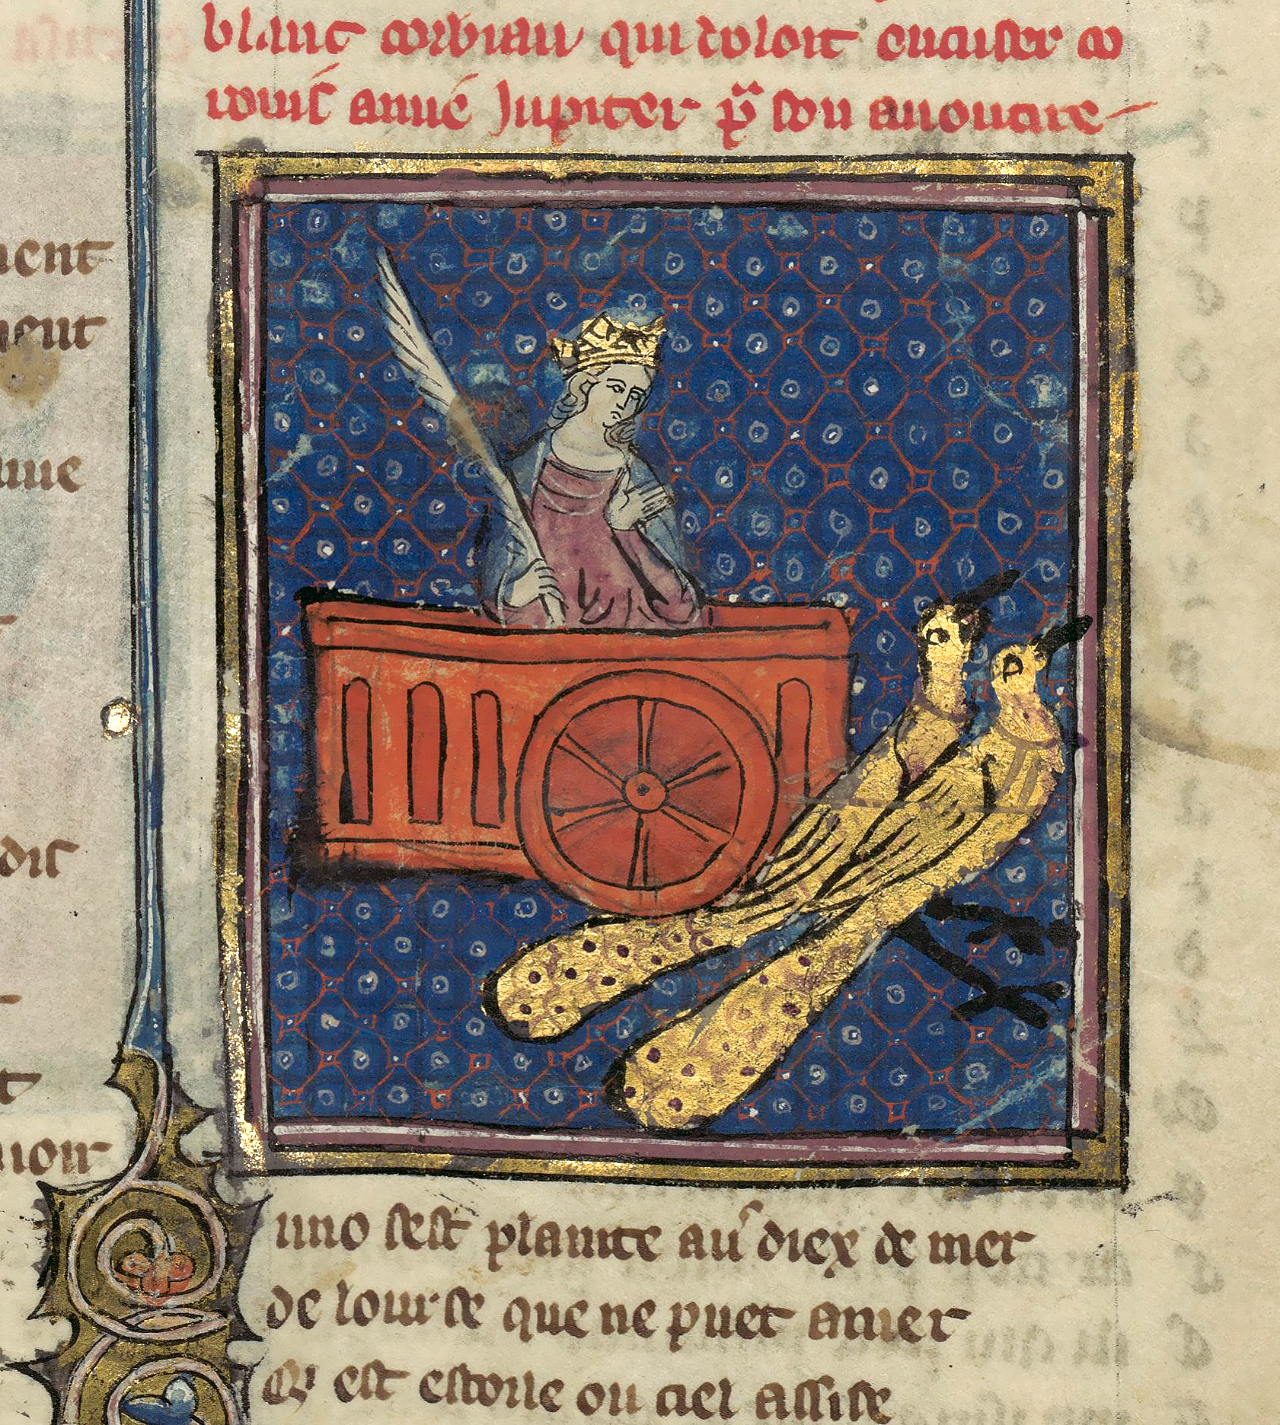 blanc corbiau qui voloit encuser co
rouis amie Jupiter p son avoutire
ment
ment
uue
dit
t
uno sest plainte au diex de mer
de lourse que ne puet amer
Q est estoile ou ciel assise